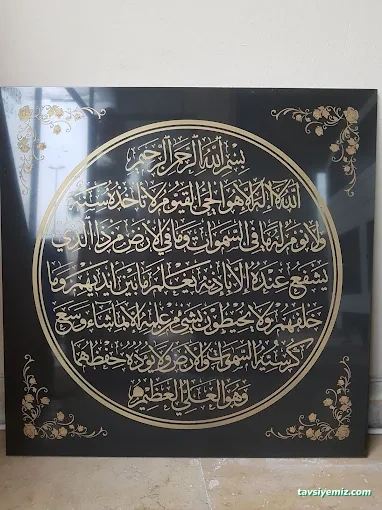 بسم الله الرحمن الرحيم
الله لا إله إلا هو الحي القيوم لا تأخذه سنة
ولا نوم له ما في السموات وما في الأرض من ذا الذي
يشفع عنده إلا بإذنه يعلم ما بين أيديهم وما
خلفهم ولا يحيطون بشيء من علمه إلا بما شاء وسع
كرسيه السموات والأرض ولا يؤده حفظهما
وهو العلي العظيم
tavsiyemiz.com